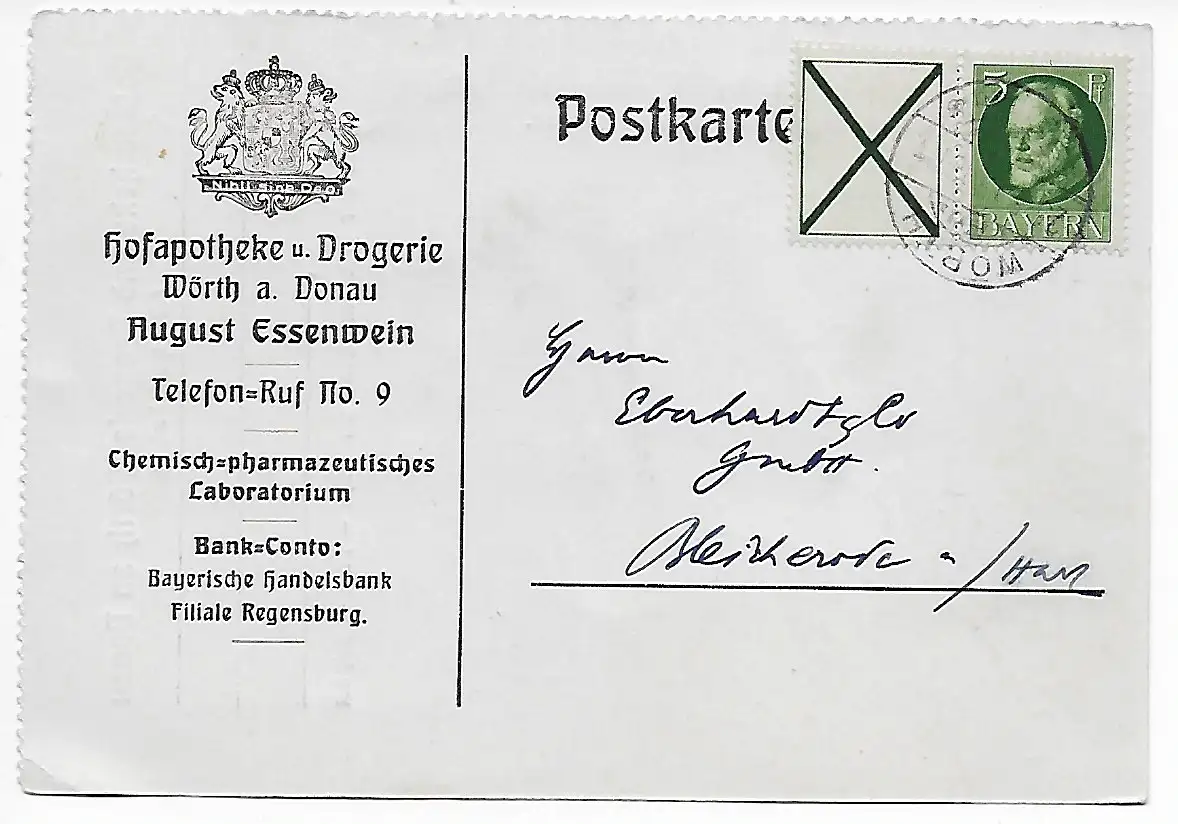 Nihil sine Deo
Hofapotheke u. Drogerie
Wörth a. Donau
August Essenwein
Telefon=Ruf No. 9
Chemisch=pharmazeutisches
Laboratorium
Bank=Conto:
Bayerische Handelsbank
Filiale Regensburg.
Postkarte
5 Pf
BAYERN
WÖRTH
Herrn
Eberhardt & Co
GmbH.
Bleicherode a/Harz